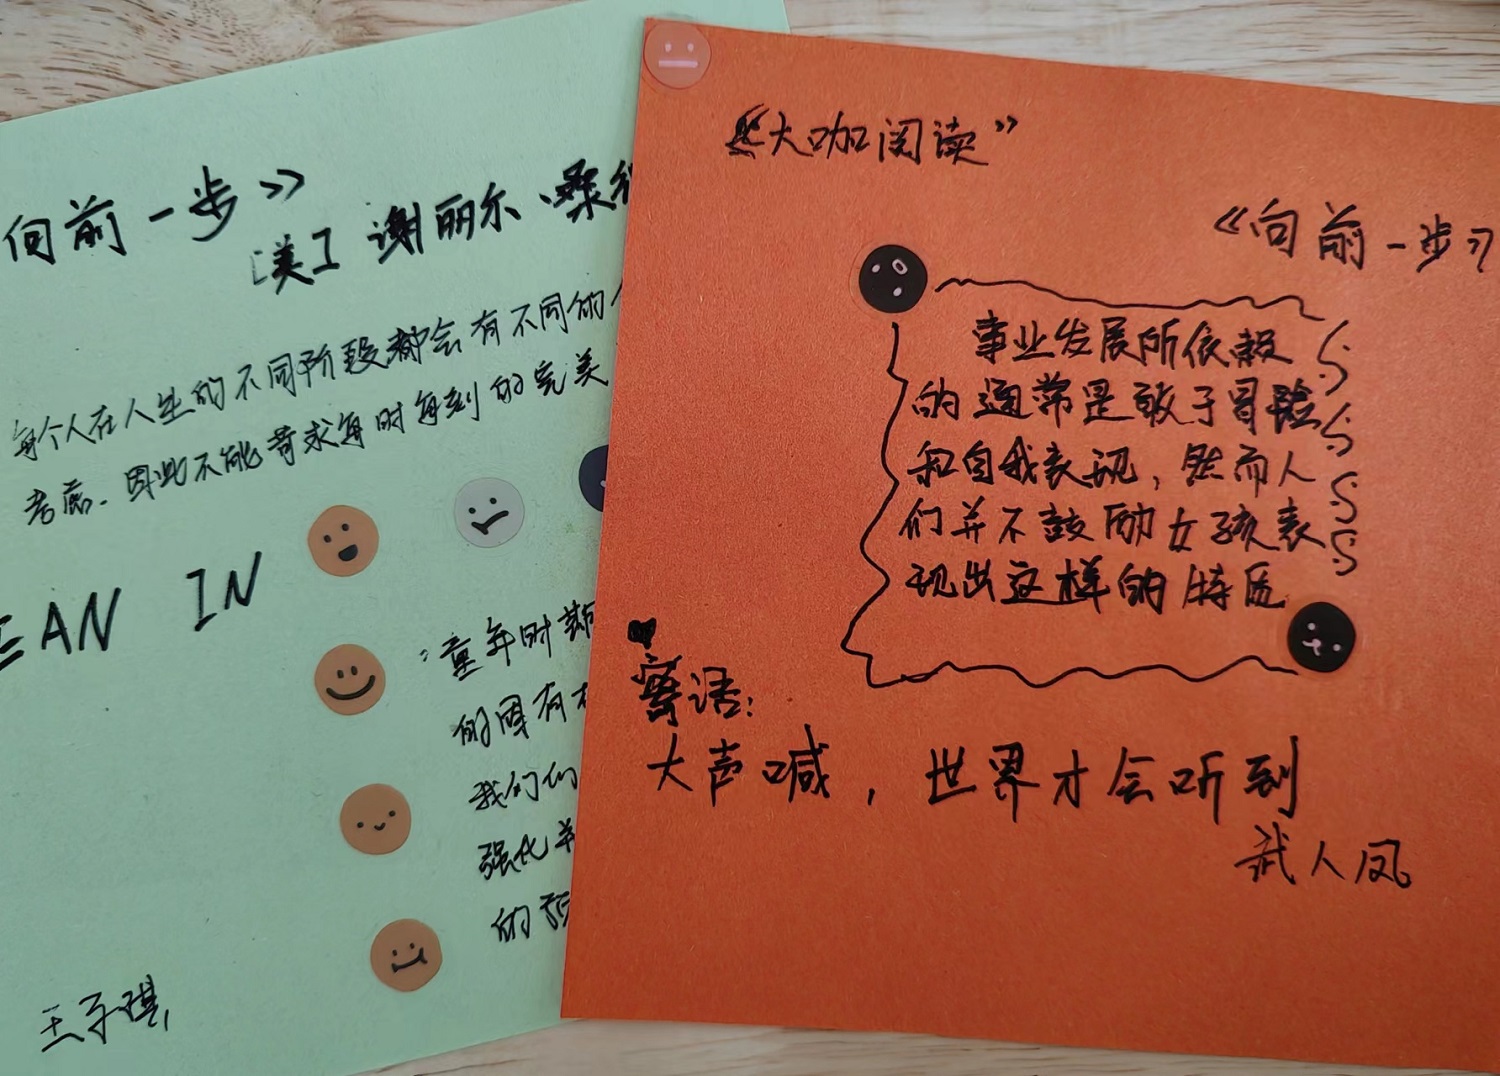 向前一步》
[美] 谢丽尔·桑
每个人在人生的不同阶段都会有不同的
考虑、因此不能苛求每时每刻的完美
EAN IN
:童年时期
的固有
我们们
强化
的预
王子琪
《大咖阅读》
《向前一步》
事业发展所依赖
的通常是敢于冒险
和自我表现，然而人
们并不鼓励女孩表
现出这样的特质
寄语:
大声喊，世界才会听到
武人凤